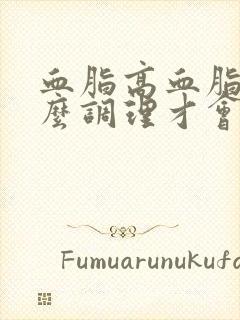 血脂高血脂
麼調理才會
Fumuarunukufo